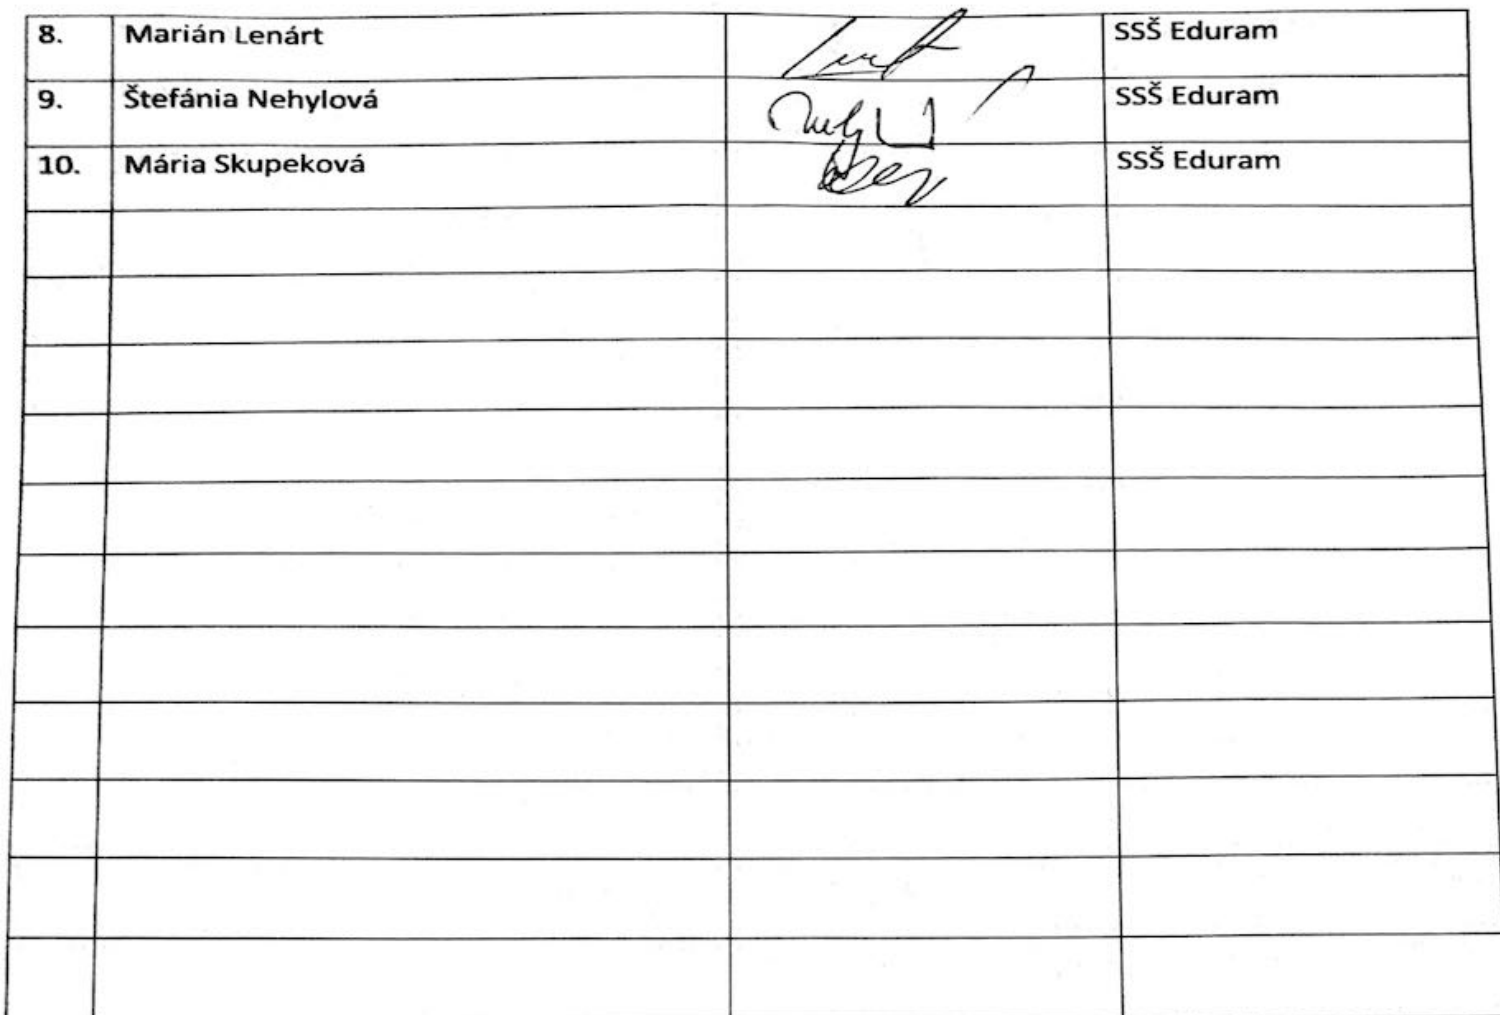 8. Marián Lenárt SSŠ Eduram
9. Štefánia Nehylová SSŠ Eduram
10. Mária Skupeková SSŠ Eduram